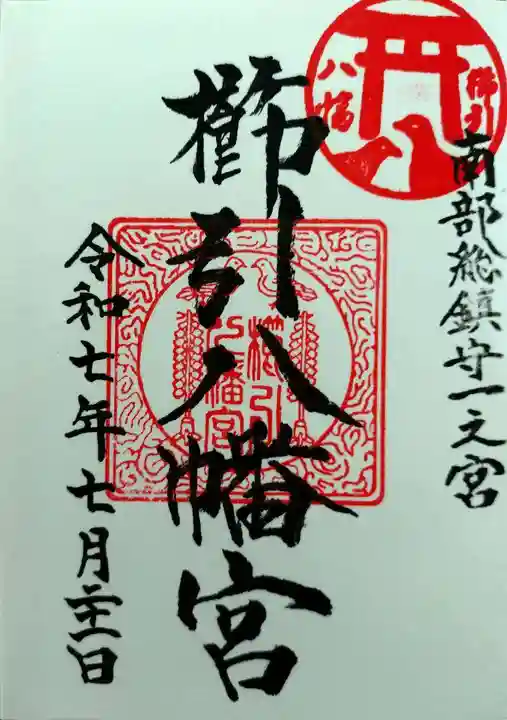 櫛引
八幡
南部総鎮守一之宮
櫛引八幡宮
櫛引
八幡宮
令和七年七月二十一日